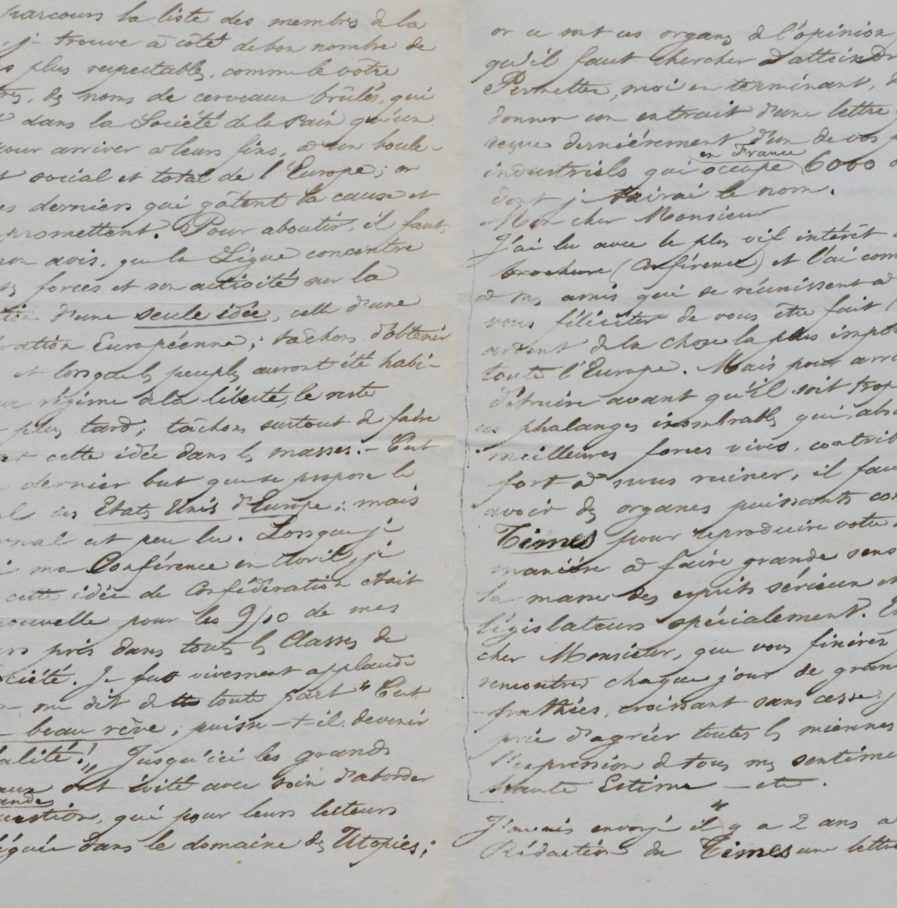 parcours la liste des membres de la
je trouve à côté de bon nombre de
plus respectables, comme le vôtre
les noms de cerveaux brûlés, qui
dans la Société de la Paix qu'un
pour arriver à leurs fins, à un boule-
social et total de l'Europe ; or
ces derniers qui gâtent la cause et
Pour aboutir, il faut,
mon avis, que la Ligue concentre
ses forces et son activité sur la
d'une seule idée, celle d'une
Européenne ; tâchons d'obtenir
et lorsque les peuples auront été habi-
régime de la liberté, le reste
plus tard ; tâchons surtout de faire
cette idée dans les masses. - C'est
dernier but que se propose le
des Etats Unis d'Europe ; mais
est peu lu. Lorsque je
ma Conférence en Avril, je
cette idée de Confédération était
nouvelle pour les 9/10 de mes
près dans toutes les Classes de
Je fus vivement applaudi
me dit de toute part "C'est
beau rêve ; puisse-t-il devenir
Jusqu'ici les grands
ont évité avec soin d'aborder
question, qui pour leurs lecteurs
dans le domaine des Utopies ;
or ce sont ces organes de l'opinion
qu'il faut chercher d'atteindre
Permettez, moi en terminant,
donner un extrait d'une lettre
reçue dernièrement d'un de vos
industriels qui en France occupe 6000
dont je tairai le nom.
Mon cher Monsieur
J'ai lu avec le plus vif intérêt
brochure (Conférence) et l'ai com
à mes amis qui se réunissent à
vous féliciter de vous être fait
ardent de la chose la plus impor
toute l'Europe. Mais pour arri
détruire avant qu'il soit trop
ces phalanges innombrables qui, abs
meilleures forces vives, contrib
fort à nous ruiner, il fau
avoir des organes puissants com
Times pour reproduire votre
manière à faire grande sens
la masse des esprits sérieux et
législateurs spécialement.
cher Monsieur, que vous finirez
rencontrer chaque jour de gran
croissant sans cesse,
prie d'agréer toutes les miennes
l'expression de tous mes sentimen
haute Estime - etc.
J'avais envoyé il y a 2 ans a
Rédaction du Times une lettre